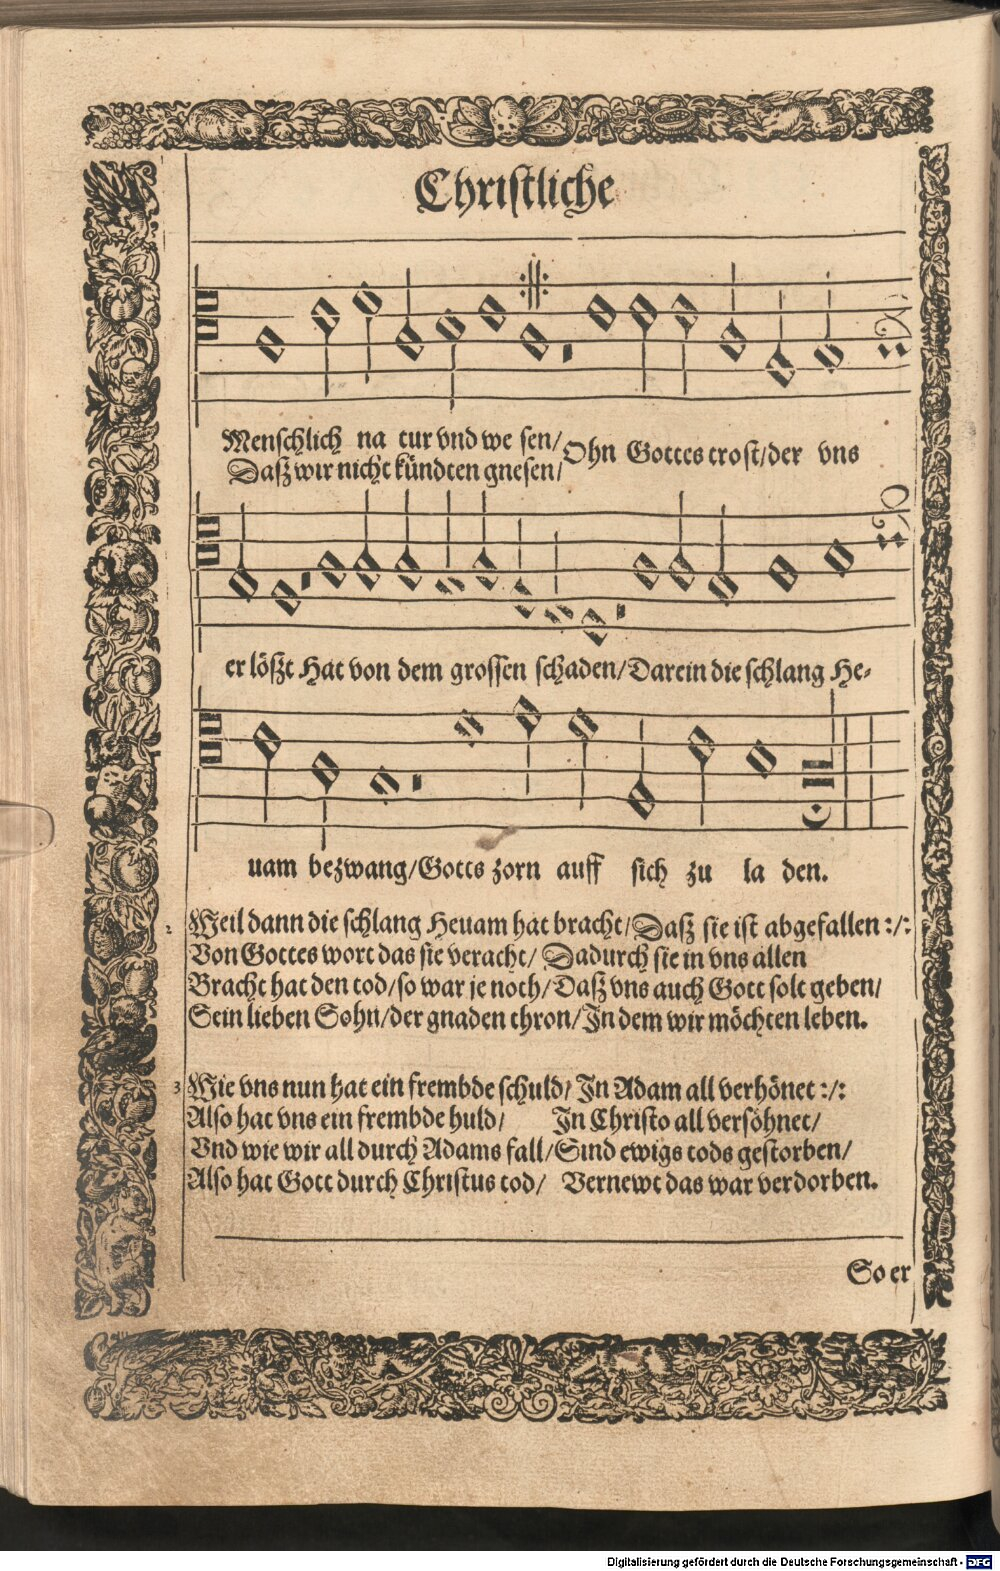 Christliche
Menschlich na tur vnd we sen/
Dasz wir nicht kündten gnesen/
Ohn Gottes trost/der vns
er löszt Hat von dem grossen schaden/Darein die schlang He-
uam bezwang/Gotts zorn auff sich zu la den.
2 Weil dann die schlang Heuam hat bracht/Dasz sie ist abgefallen :/:
Von Gottes wort das sie veracht/ Dadurch sie in vns allen
Bracht hat den tod/so war je noth/Dasz vns auch Gott solt geben/
Sein lieben Sohn/der gnaden thron/In dem wir möchten leben.
3 Wie vns nun hat ein frembde schuld/ In Adam all verhönet :/:
Also hat vns ein frembde huld/ In Christo all versöhnet/
Vnd wie wir all durch Adams fall/Sind ewigs tods gestorben/
Also hat Gott durch Christus tod/ Vernewt das war verdorben.
So er
Digitalisierung gefördert durch die Deutsche Forschungsgemeinschaft - DFG